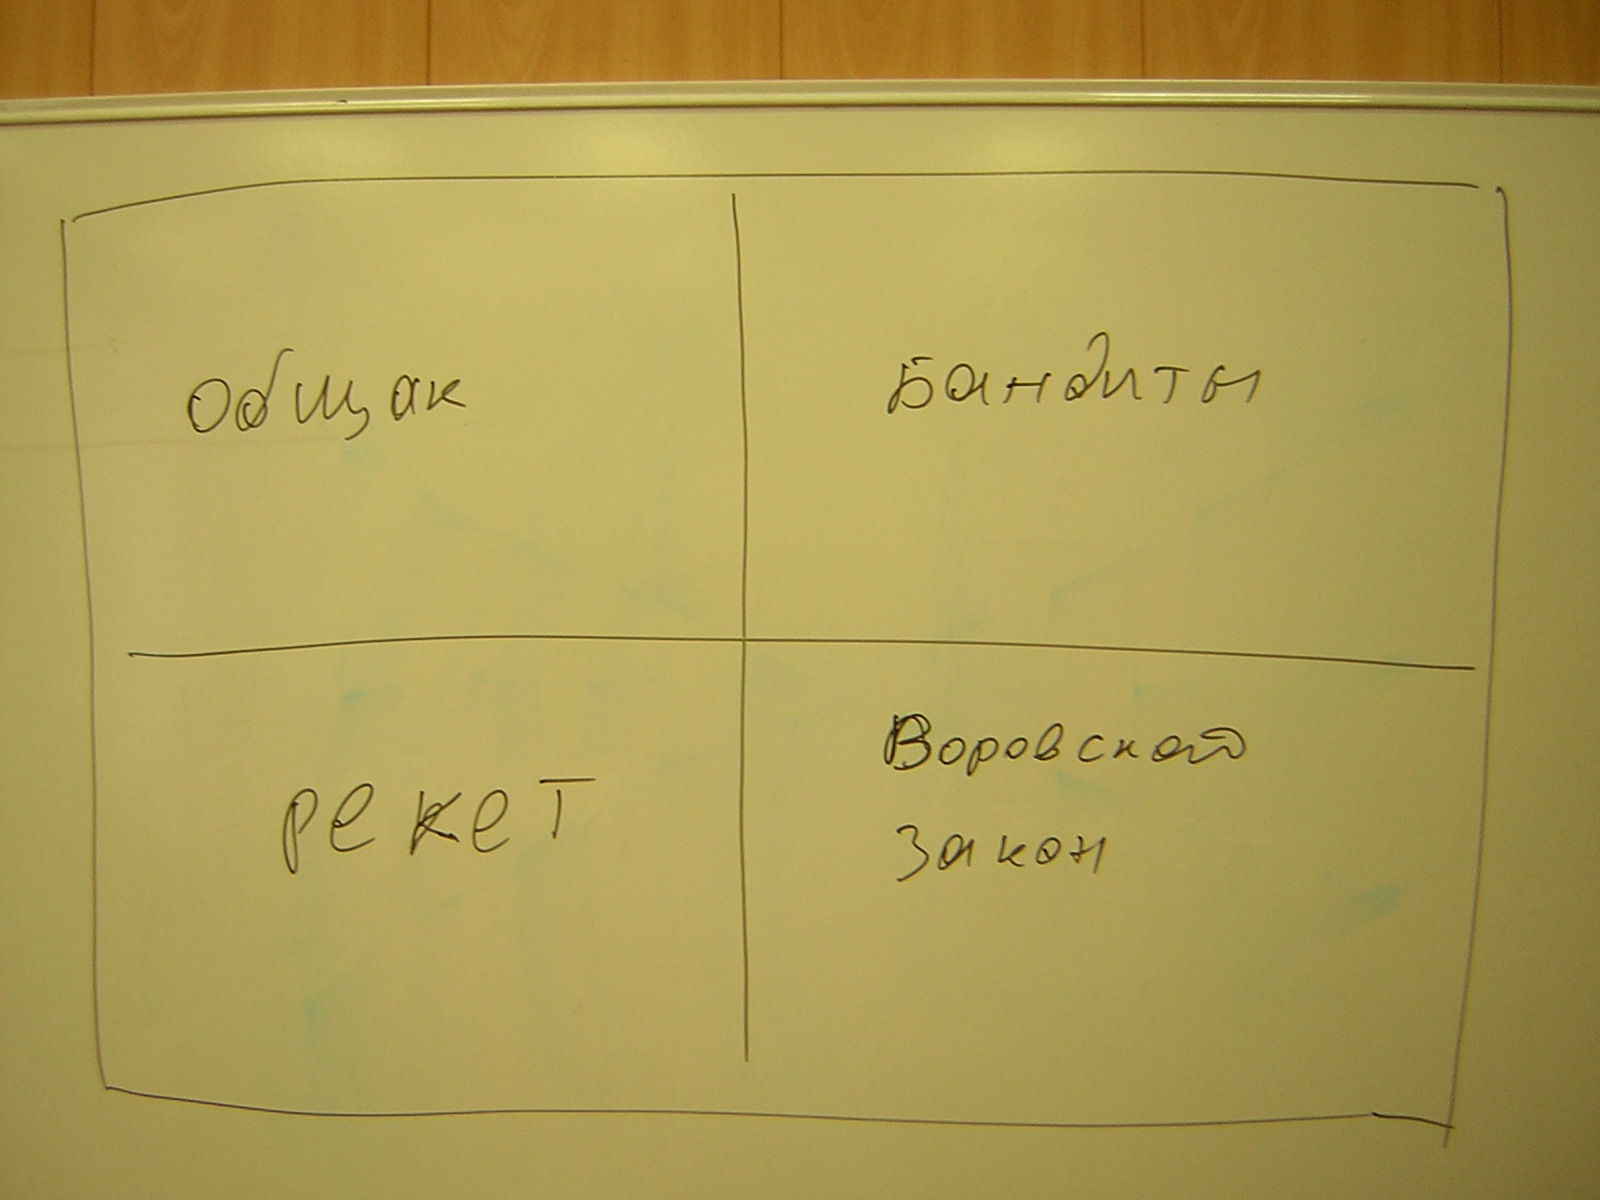 Общак
Бандиты
рекет
Воровской
Закон